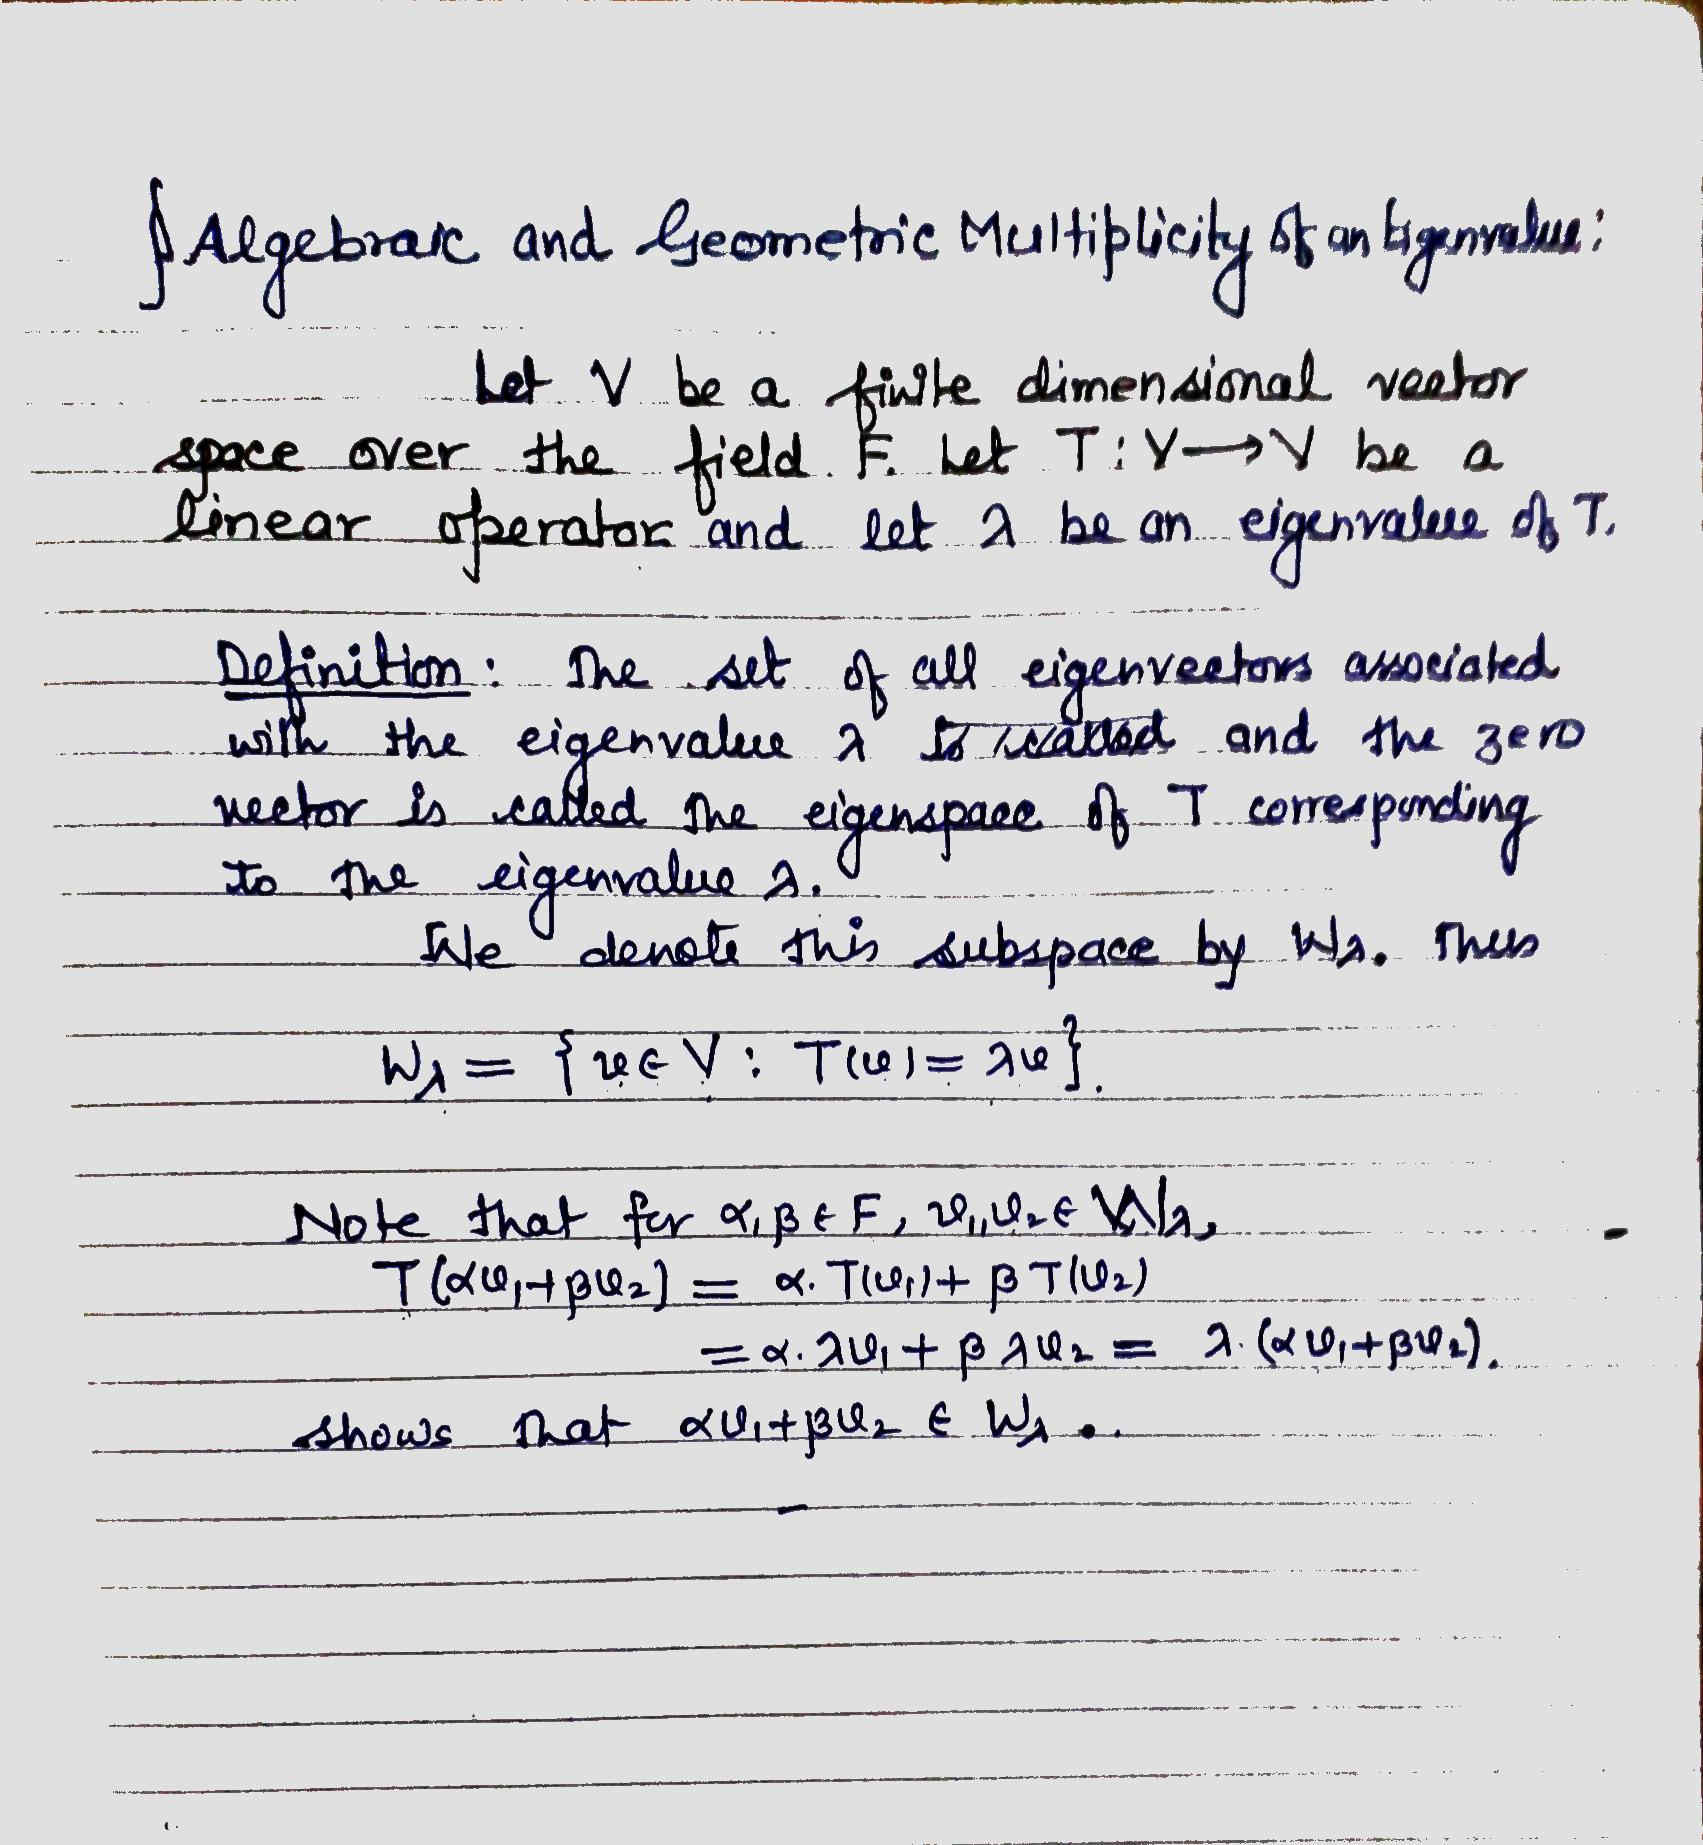 ∮ Algebraic and Geometric Multiplicity of an Eigenvalue:
Let V be a finite dimensional vector
space over the field F. Let T: V⟶V be a
linear operator and let λ be an eigenvalue of T.
Definition: The set of all eigenvectors associated
with the eigenvalue λ is called and the zero
vector is called the eigenspace of T corresponding
to the eigenvalue λ.
We denote this subspace by Wλ. Thus
Wλ = {v ∈ V : T(v) = λv}.
Note that for α, β ∈ F, v₁, v₂ ∈ Wλ,
T(αv₁+βv₂) = α. T(v₁) + β T(v₂)
= α. λv₁ + β λv₂ = λ. (αv₁+βv₂).
shows that αv₁+βv₂ ∈ Wλ.